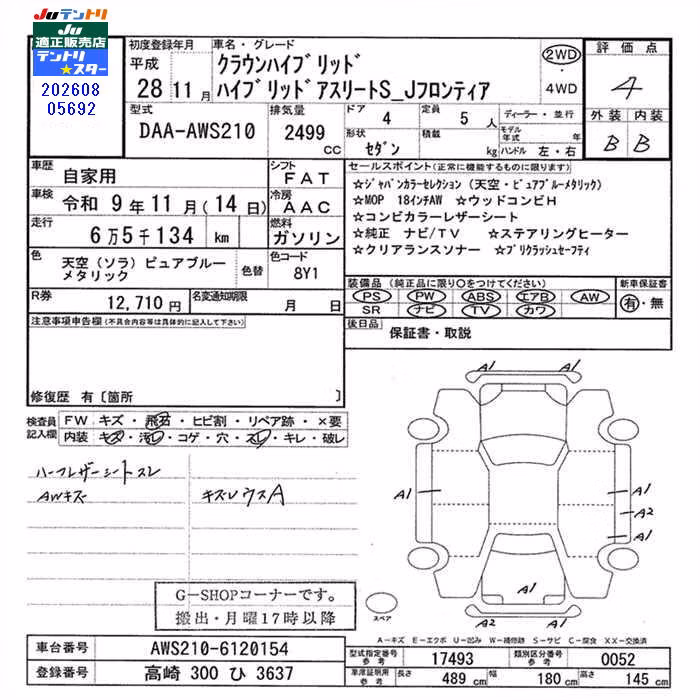 Juテントリ
Ju
適正販売店
テントリ
★スター
202608
05692
初度登録年月
平成
28 11月
車名・グレード
クラウンハイブリッド
ハイブリッドアスリートS_Jフロンティア
2WD
・
4WD
評価点
4
外装 内装
B B
型式
DAA-AWS210
排気量
2499
CC
ドア
4
定員
5 人
形状
セダン
積載
kg
ディーラー・並行
モデル年式 年
ハンドル 左・右
車歴
自家用
シフト
FAT
車検
令和 9年11月(14日)
冷房
AAC
走行
6万5千134 km
燃料
ガソリン
色
天空(ソラ)ピュアブルー
メタリック
色替
色コード
8Y1
R券
12,710円
名変通知期限
月 日
セールスポイント(正常に機能するものに限ります)
☆ジャパンカラーセレクション(天空・ピュアブルーメタリック)
☆MOP 18インチAW ☆ウッドコンビH
☆コンビカラーレザーシート
☆純正 ナビ/TV ☆ステアリングヒーター
☆クリアランスソナー ☆プリクラッシュセーフティ
装備品(純正品に限り○をつけてください)
PS PW ABS エアB AW
SR ナビ TV カワ
新車保証書
有・無
後日品
保証書・取説
注意事項申告欄(不具合内容等は具体的に記入して下さい)
修復歴 有〔箇所 〕
検査員
記入欄
FW キズ・飛石・ヒビ割・リペア跡・×要
内装 キズ・汚れ・コゲ・穴・スレ・キレ・破レ
ハーフレザーシートスレ
AWキズ
キズUウスA
A1
A1
A1
A1
A2
A1
A1
A2
A1
スペア
G-SHOPコーナーです。
搬出・月曜17時以降
A-キズ E-エクボ U-凹み W-補修跡 S-サビ C-腐食 XX-交換済
車台番号
AWS210-6120154
登録番号
高崎 300 ひ 3637
型式指定番号
参考
17493
類別区分番号
参考
0052
車庫証明用
参考
長さ
489 cm
幅
180 cm
高さ
145 cm